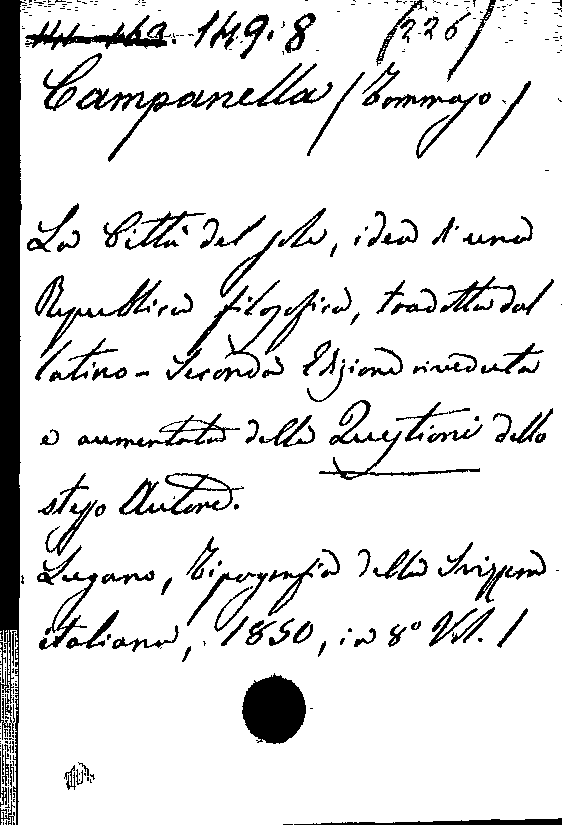 149.8 (226)
Campanella (Tommaso)
La Città del sole, idea di una
Repubblica filosofica, tradotta dal
latino - Seconda Edizione riveduta
e aumentata delle Questioni dello
stesso Autore.
Lugano, Tipografia della Svizzera
italiana, 1850, in 8° Vol. 1